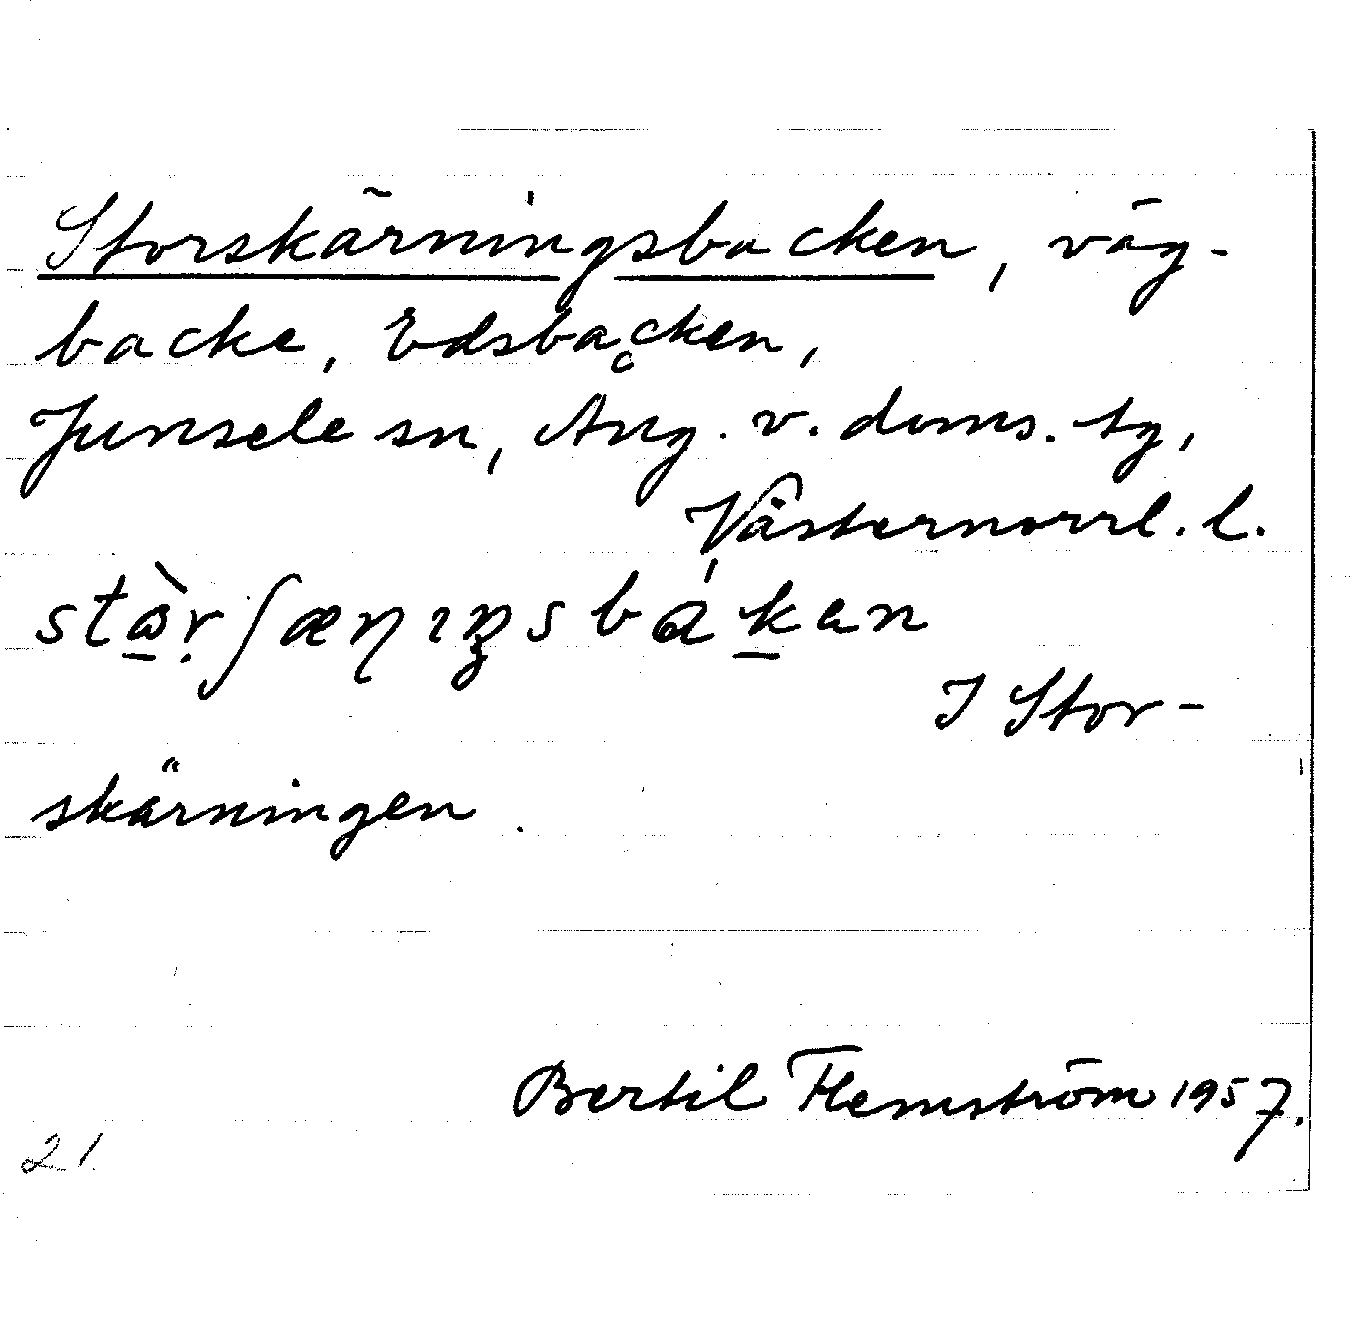 Storskärningsbacken, väg-
backe, Edsbacken,
Junsele sn, Ång. v. doms. tg,
Västernorrl. l.
I Stor-
skärningen.
Bertil Flemström 1957.
21